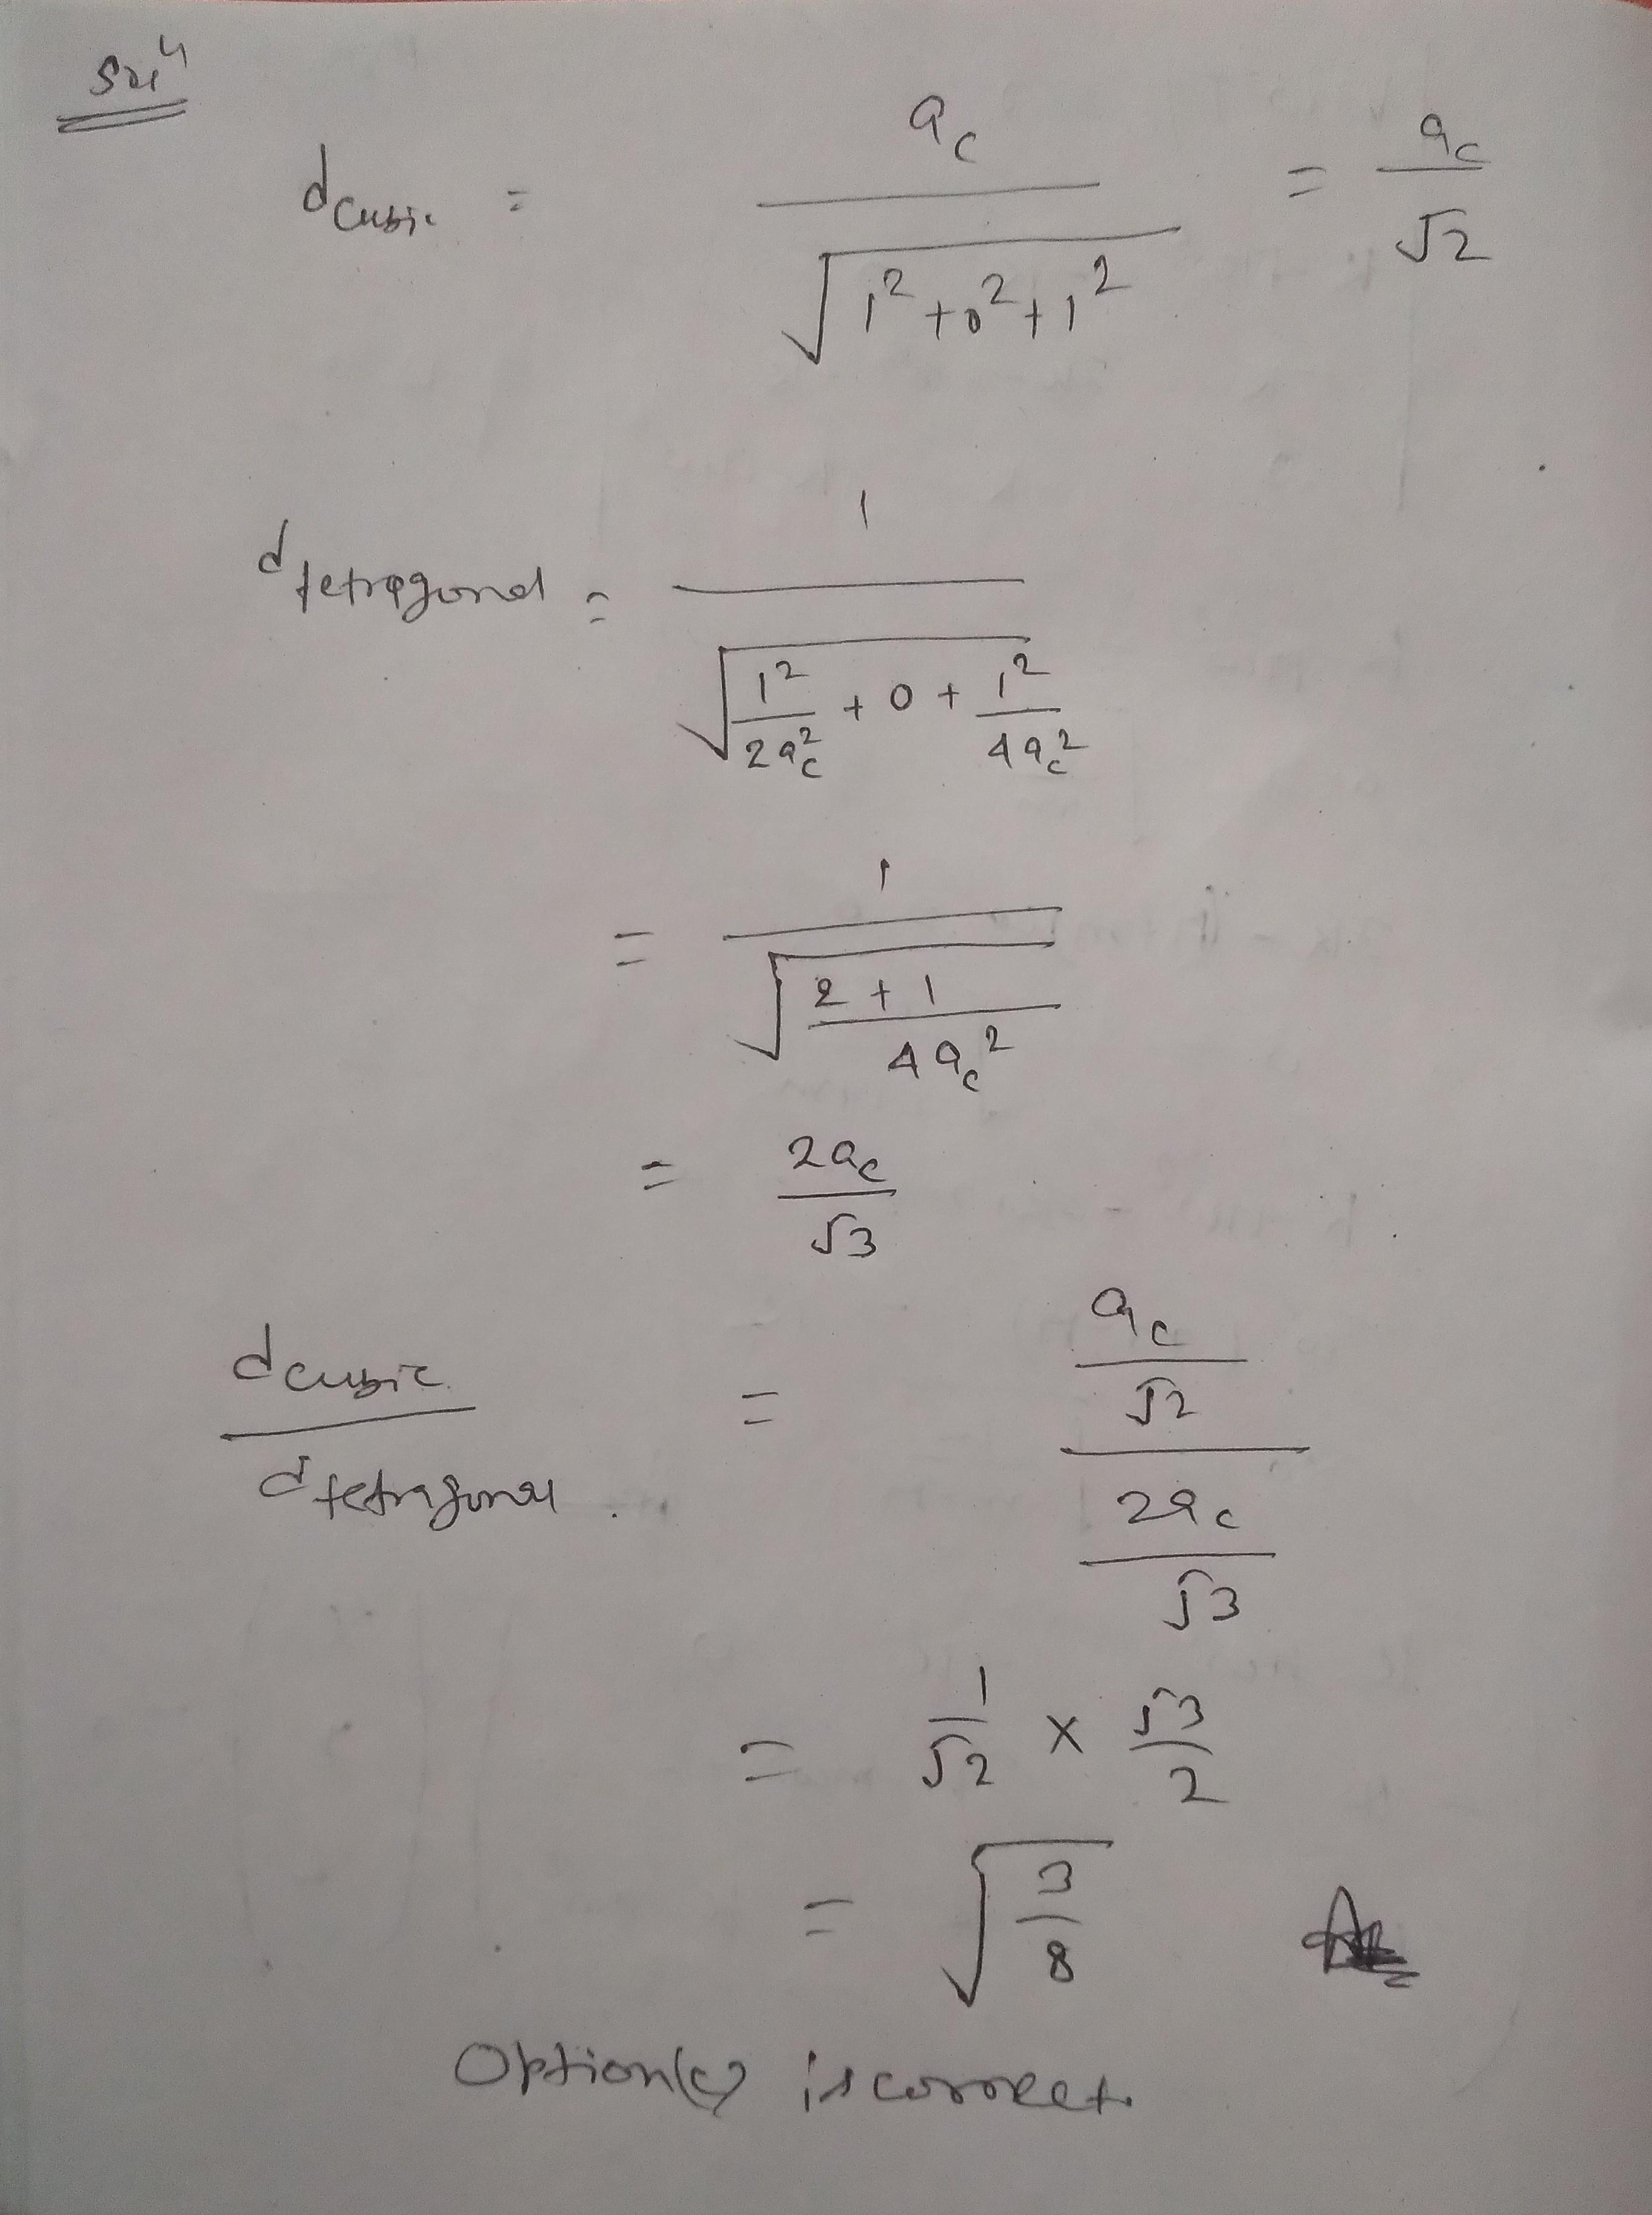 Sol<sup>n</sup>
d_cubic = a_c / √(1² + 0² + 1²) = a_c / √2
d_tetragonal = 1 / √(1² / 2a_c² + 0 + 1² / 4a_c²)
= 1 / √((2 + 1) / 4a_c²)
= 2a_c / √3
d_cubic / d_tetragonal. = (a_c / √2) / (2a_c / √3)
= 1 / √2 × √3 / 2
= √(3 / 8)
Option(c) is correct.